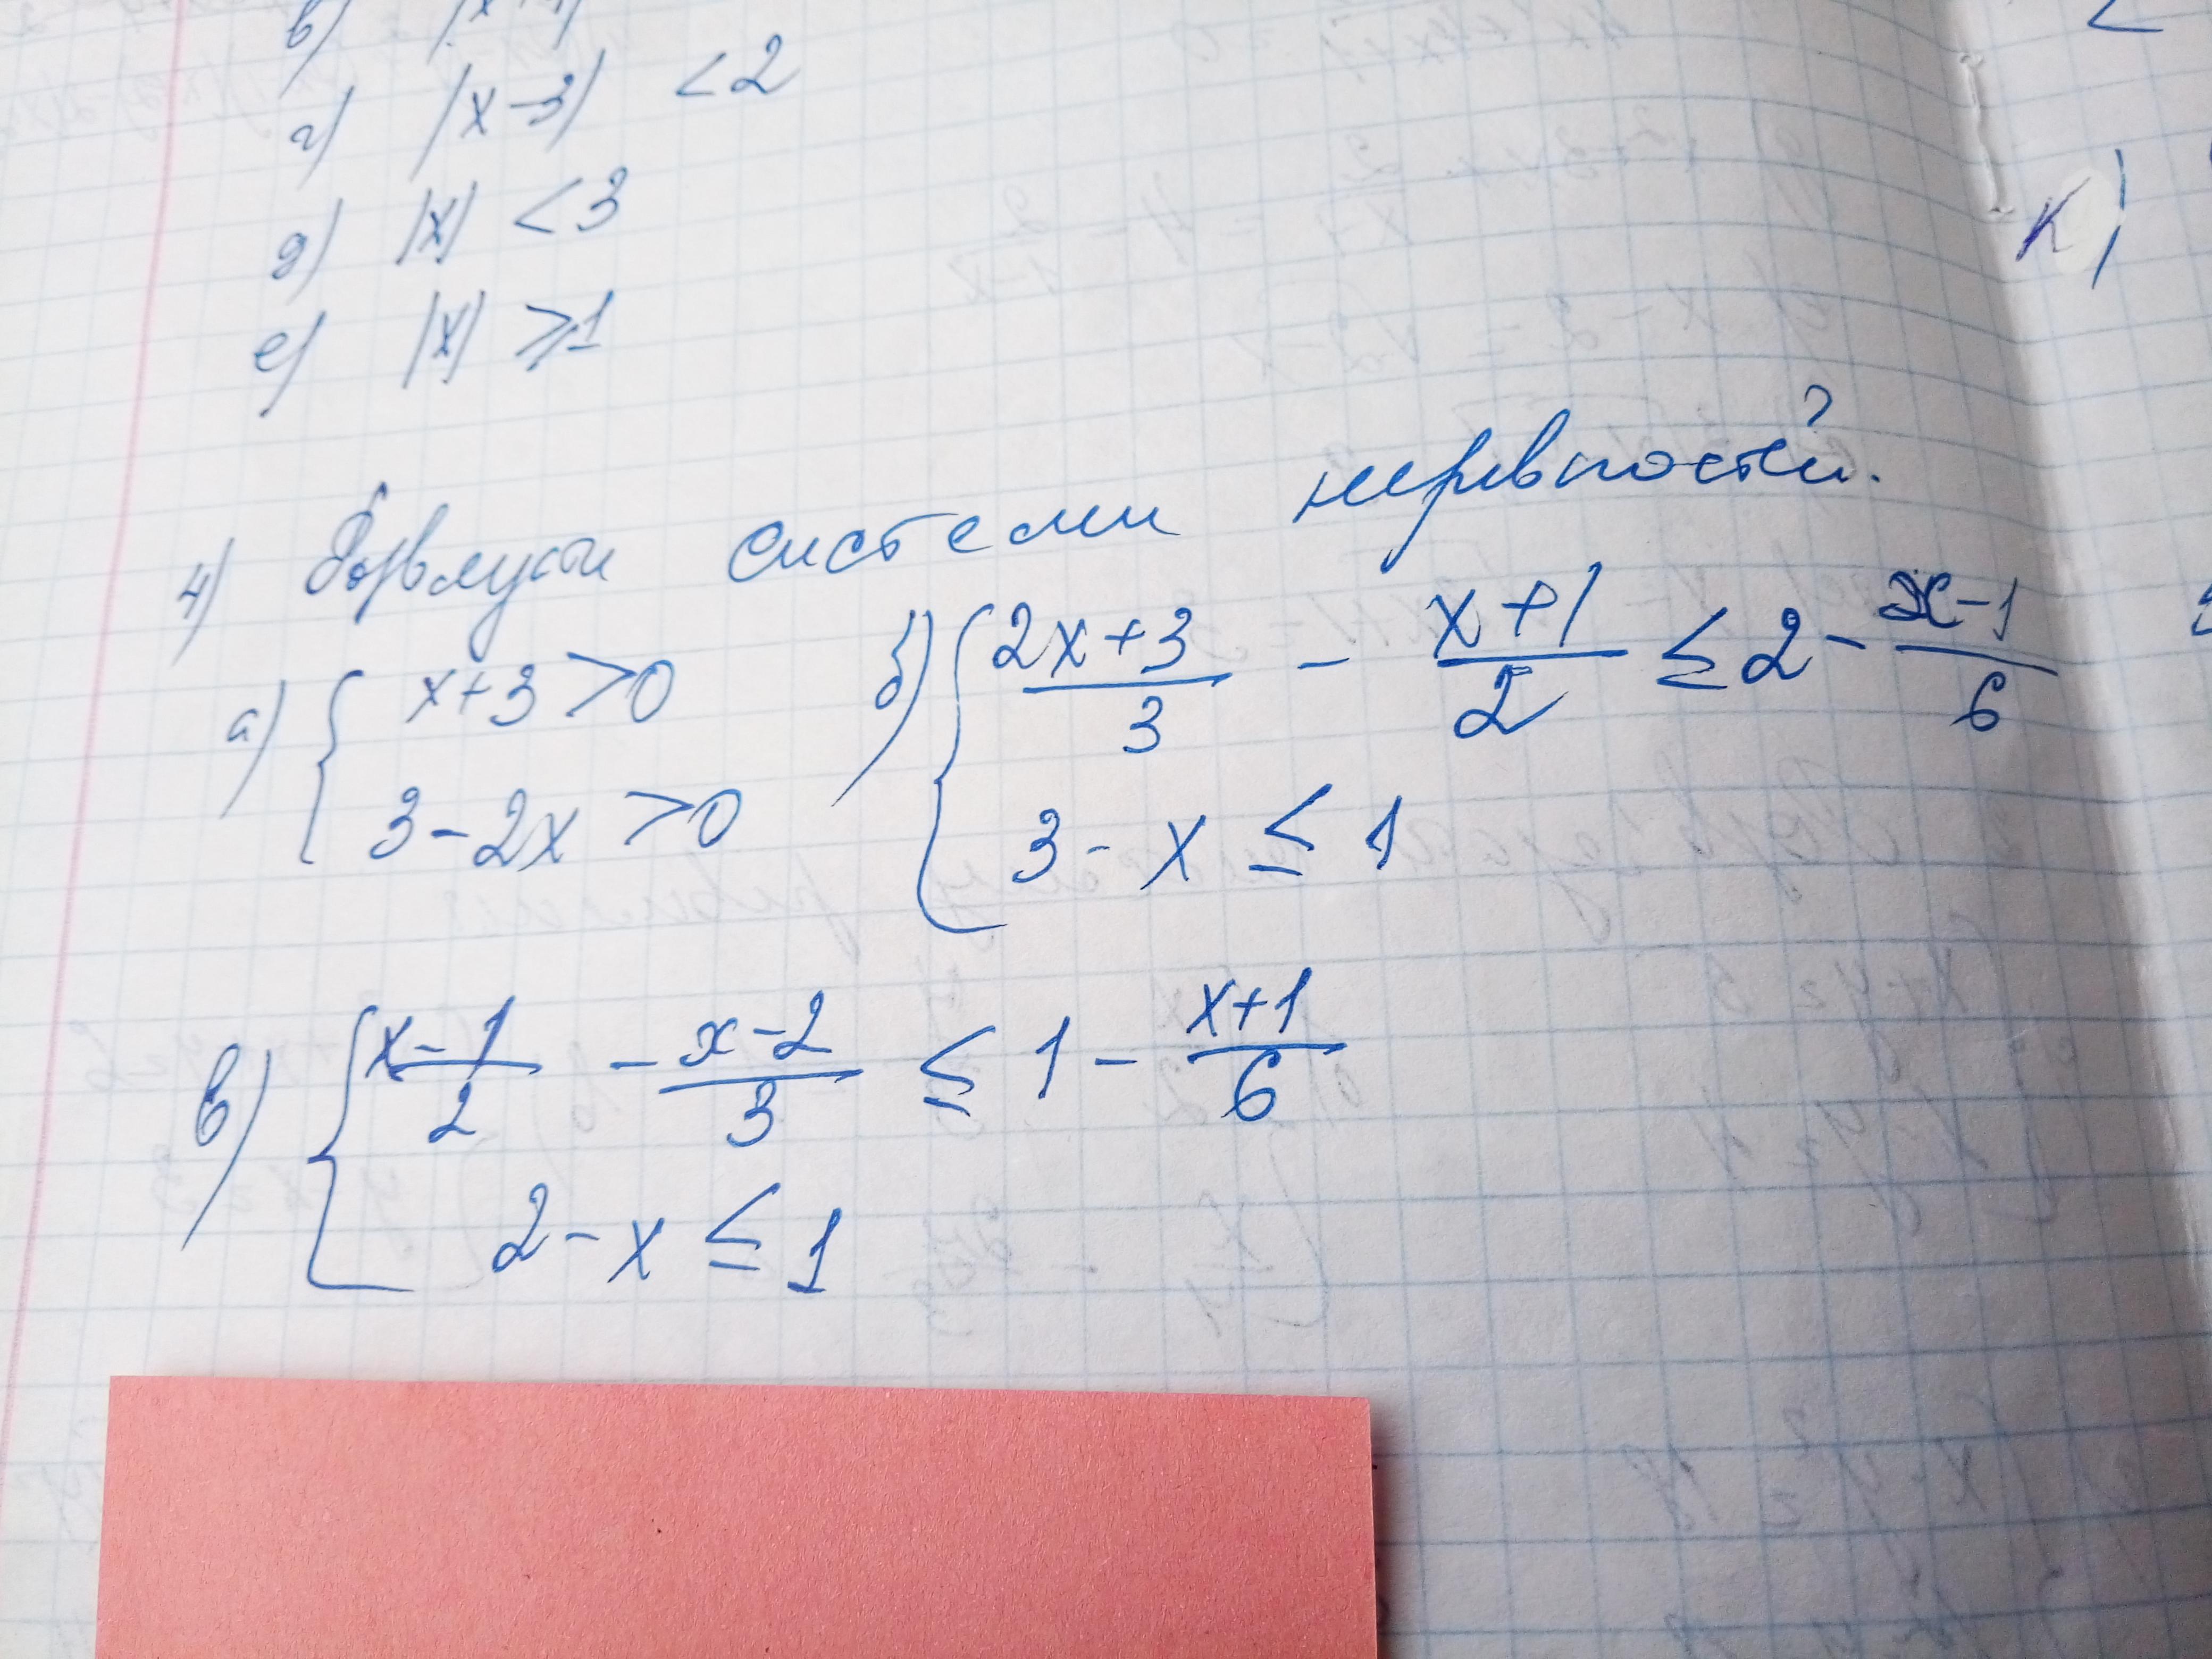 в)
г) |x-3| < 2
д) |x| < 3
е) |x| ⩾ 1
к)
4) системи нерівностей.
а) { x+3 > 0
3-2x > 0
б) { (2x+3)/3 - (x+1)/2 ≤ 2 - (x-1)/6
3-x ≤ 1
в) { (x-1)/2 - (x-2)/3 ≤ 1 - (x+1)/6
2-x ≤ 1